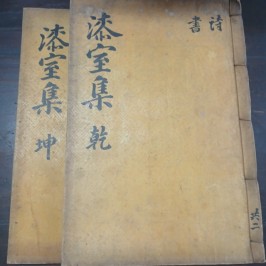 漆室集 乾
詩
書
共二
漆室集 坤